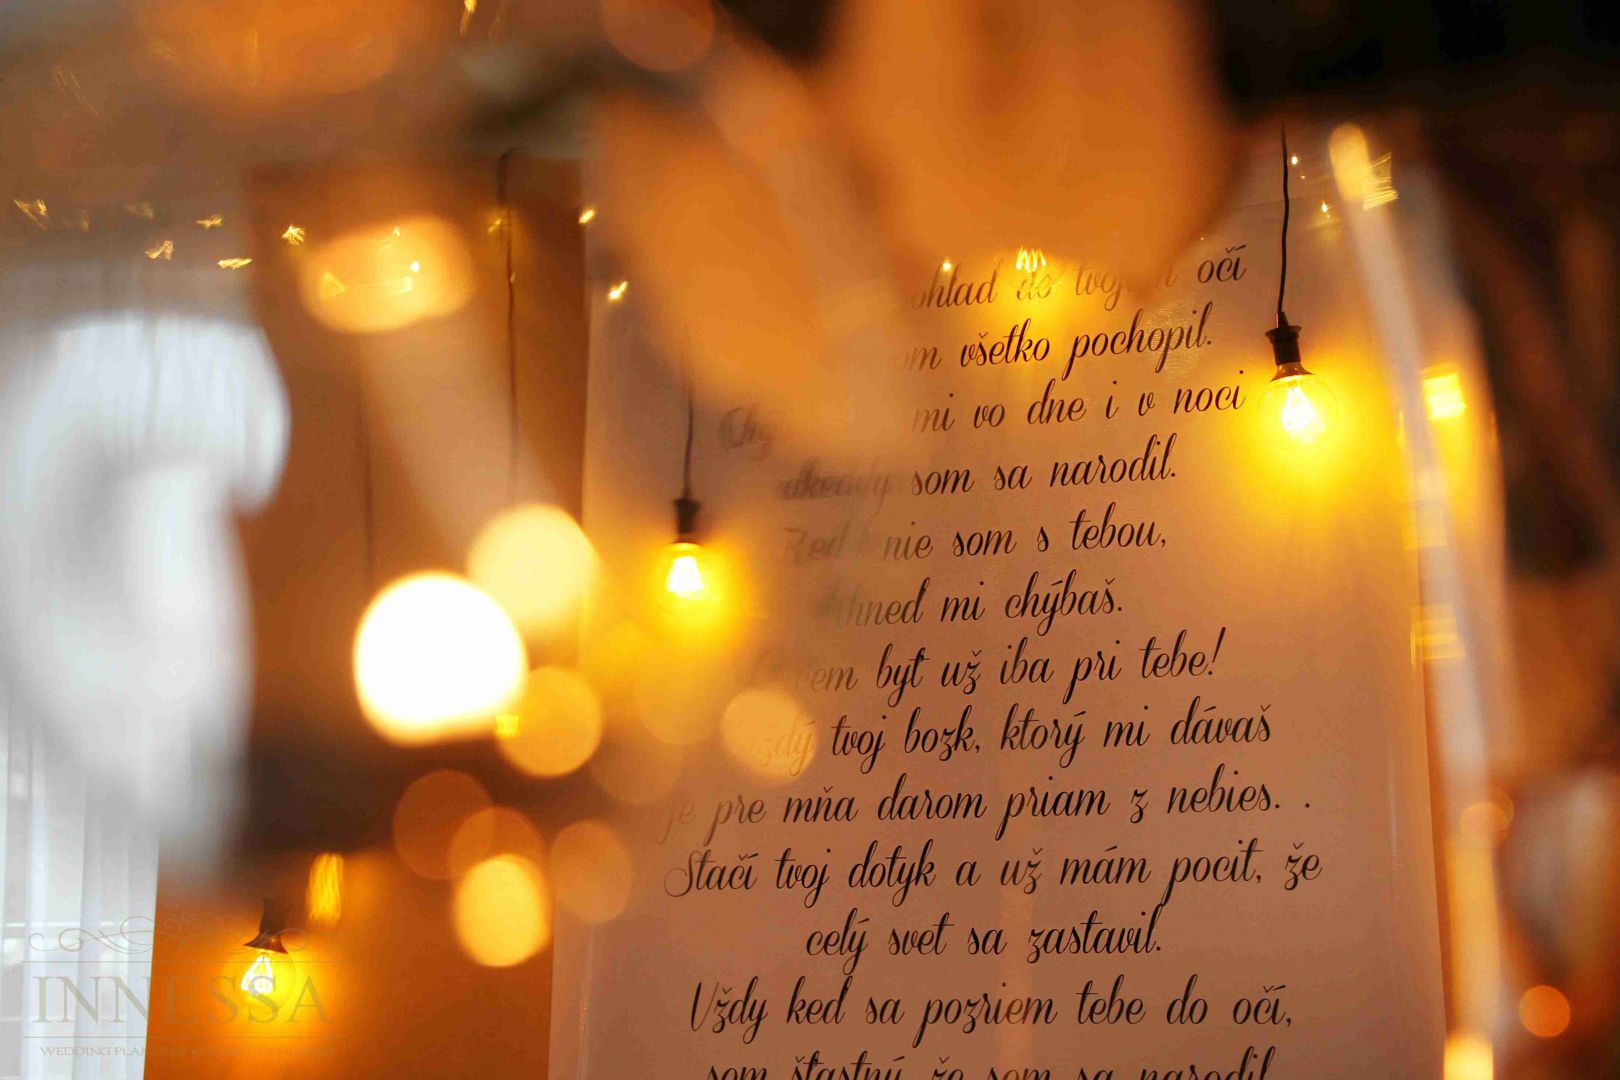 do očí
všetko pochopil.
mi vo dne i v noci
som sa narodil.
nie som s tebou,
mi chýbaš.
byť už iba pri tebe!
tvoj bozk, ktorý mi dávaš
je pre mňa darom priam z nebies. .
Stačí tvoj dotyk a už mám pocit, že
celý svet sa zastavil.
Vždy keď sa pozriem tebe do očí,
som šťastný, že som sa narodil.
INNESSA